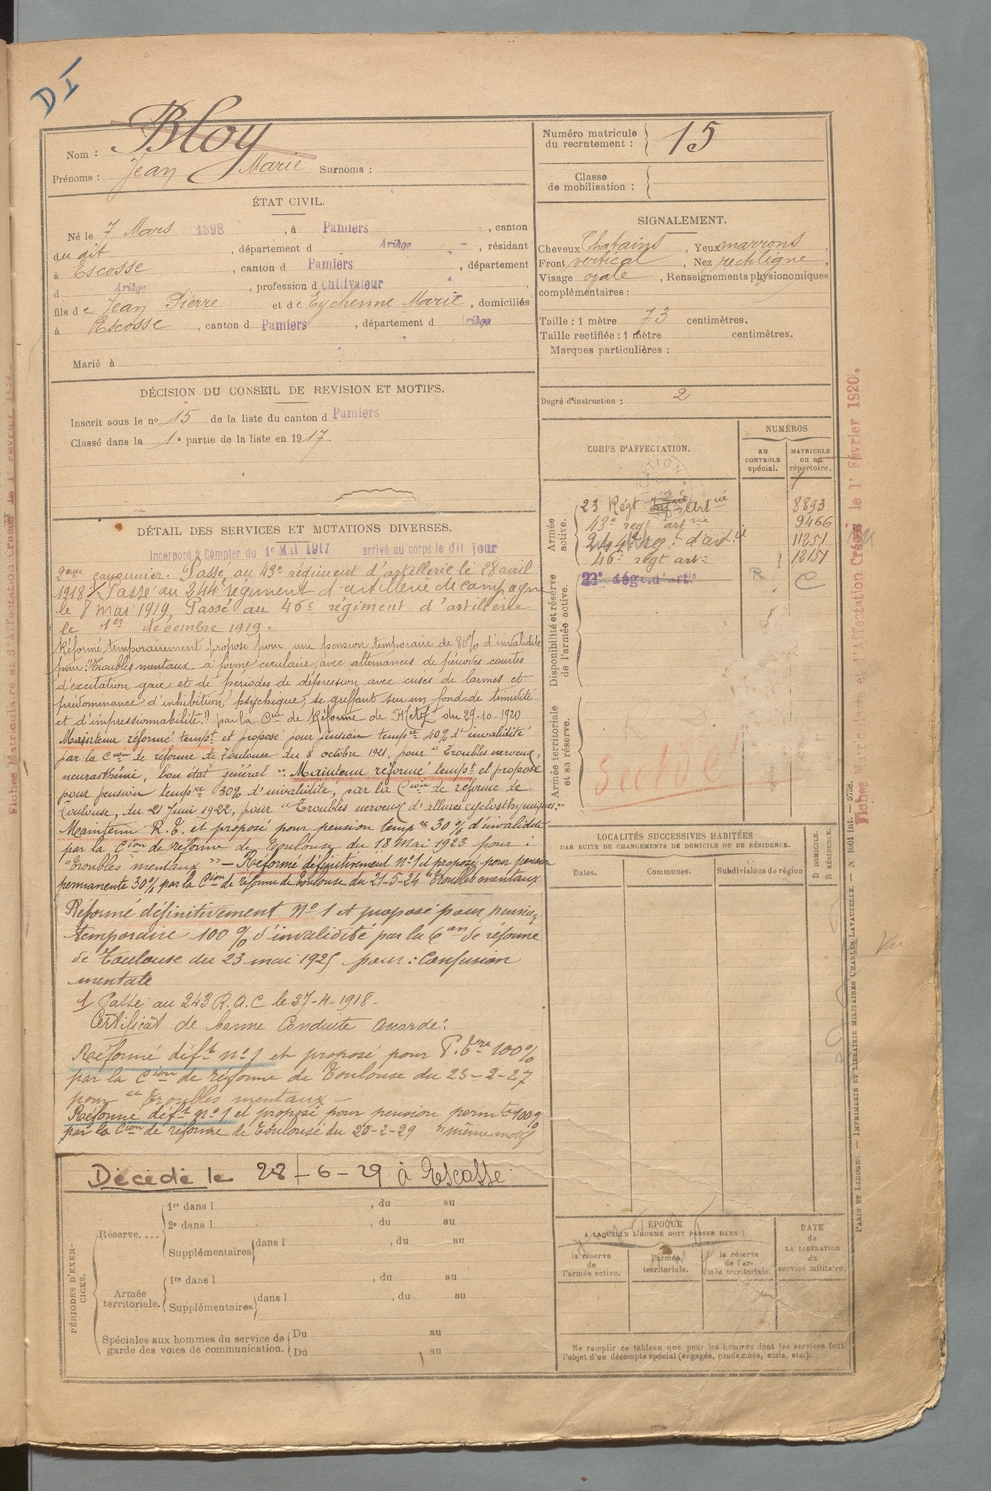 DI
Nom : Bloy
Prénoms : Jean Marie Surnoms :
ÉTAT CIVIL.
Né le 7 Mars 1898, à Pamiers, canton
du dit, département d Ariège, résidant
à Escosse, canton d Pamiers, département
d Ariège, profession d Cultivateur
fils de Jean Pierre et de Eychenne Marie, domiciliés
à Escosse, canton d Pamiers, département d Ariège
Marié à
DÉCISION DU CONSEIL DE REVISION ET MOTIFS.
Inscrit sous le no 15 de la liste du canton d Pamiers
Classé dans la 1e partie de la liste en 1917.
DÉTAIL DES SERVICES ET MUTATIONS DIVERSES.
Incorporé à Compter du 1er Mai 1917 arrivé au corps le dit jour
2ème canonnier. Passé au 43e régiment d'artillerie le 28 avril
1918 X Passé au 244e régiment d'artillerie de campagne
le 8 mai 1919, Passé au 46e régiment d'artillerie
le 1er décembre 1919.
Réformé temporairement proposé pour une pension temporaire de 80% d'invalidité
pour: "Troubles mentaux à forme circulaire, avec alternances de périodes courtes
d'excitation gaie et de périodes de dépression avec crises de larmes et
prédominance d'inhibition psychique, se greffant sur un fond de timidité
et d'impressionnabilité." par la Con de Réforme de du 29-10-1920
Maintenu réformé tempt et proposé pour pension tempre 40% d'invalidité
par la Cion de réforme de Toulouse du 8 octobre 1921, pour "Troubles nerveux,
neurasthénie, bon état général". Maintenu réformé tempt et proposé
pour pension tempre 30% d'invalidité, par la Cion de réforme de
Toulouse, du 21 Juin 1922, pour "Troubles nerveux d'allures cyclothymiques."
Maintenu R.T. et proposé pour pension tempre 30% d'invalidité
par la Cion de réforme de Toulouse du 18 Mai 1923 pour :
"Troubles mentaux" — Réformé définitivement no 1 et proposé pour pension
permanente 30% par la Cion de réforme de Toulouse du 21-5-24 "Troubles mentaux
Réformé définitivement No 1 et proposé pour pension
temporaire 100% d'invalidité par la Con de réforme
de Toulouse du 23 mai 1925 pour : Confusion
mentale
1 Passé au 243 R.A.C le 27-4-1918.
Certificat de bonne Conduite Accordé.
Réformé déft no 1 et proposé pour P. tre 100%
par la Cion de réforme de Toulouse du 23-2-27
pour "troubles mentaux —
Réformé déft no 1 et proposé pour pension permte 100%
par la Cion de réforme de Toulouse du 20-2-29 "même motif
Décédé le 28-6-29 à Escosse
PÉRIODES D'EXERCICES.
Réserve.... 1re dans l , du au
2e dans l , du au
Supplémentaires dans l , du au
Armée territoriale. 1re dans l , du au
Supplémentaires dans l , du au
Spéciales aux hommes du service de Du au
garde des voies de communication. Du au
Numéro matricule du recrutement : 15
Classe de mobilisation :
SIGNALEMENT.
Cheveux Chatains, Yeux marrons
Front vertical, Nez rectiligne,
Visage ovale, Renseignements physionomiques
complémentaires :
Taille : 1 mètre 73 centimètres.
Taille rectifiée : 1 mètre centimètres.
Marques particulières :
Degré d'instruction : 2
CORPS D'AFFECTATION.
NUMÉROS
AU CONTRÔLE spécial.
MATRICULE ou au répertoire.
Armée active.
23 Régt Artrie 8893
43e regt artrie 9466
244e reg. d'art. 11251
46e regt art. 12151
Disponibilité et réserve de l'armée active.
23e rég. d'artie R C
Armée territoriale et sa réserve.
LOCALITÉS SUCCESSIVES HABITÉES
PAR SUITE DE CHANGEMENTS DE DOMICILE OU DE RÉSIDENCE.
Dates. Communes. Subdivisions de région D. DOMICILE. R. RÉSIDENCE.
ÉPOQUE
A LAQUELLE L'HOMME DOIT PASSER DANS :
la réserve de l'armée active.
l'armée territoriale.
la réserve de l'armée territoriale.
DATE de LA LIBÉRATION du service militaire.
Ne remplir ce tableau que pour les hommes dont les services font
l'objet d'un décompte spécial (engagés, condamnés, omis, etc.).
Fiches Matriculaire et d'Affectation Créées le 1er Février 1920.
PARIS ET LIMOGES. — IMPRIMERIE ET LIBRAIRIE MILITAIRES CHARLES-LAVAUZELLE.
Vu